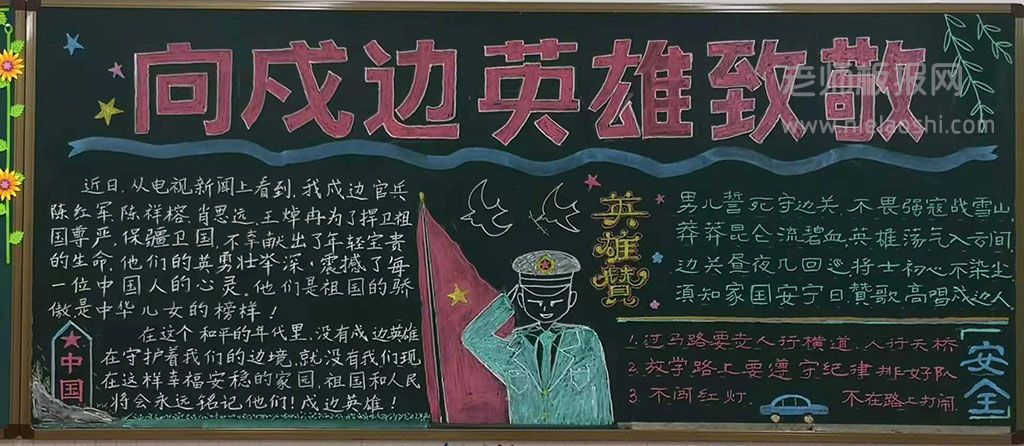 向戍边英雄致敬
老师板报网
www.nielaoshi.com
近日,从电视新闻上看到,我戍边官兵
陈红军、陈祥榕、肖思远、王焯冉为了捍卫祖
国尊严,保疆卫国,不幸献出了年轻宝贵
的生命,他们的英勇壮举深深震撼了每
一位中国人的心灵。他们是祖国的骄
傲是中华儿女的榜样!
在这个和平的年代里,没有戍边英雄
在守护着我们的边境,就没有我们现
在这样幸福安稳的家园,祖国和人民
将会永远铭记他们!戍边英雄!
中国
英雄贊
男儿誓死守边关,不畏强寇战雪山,
莽莽昆仑流碧血,英雄荡气入云间
边关昼夜几回巡,将士初心不染尘
須知家国安宁日,贊歌高唱戍边人
1.过马路要走人行横道,人行天桥
2.放学路上要遵守纪律排好队
3.不闯红灯. 不在路上打闹.
「安全」